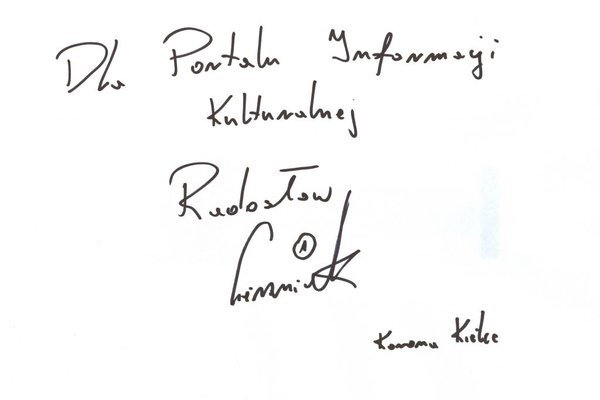 Dla Portalu Informacji
Kulturalnej
Radosław
1
Korona Kielce